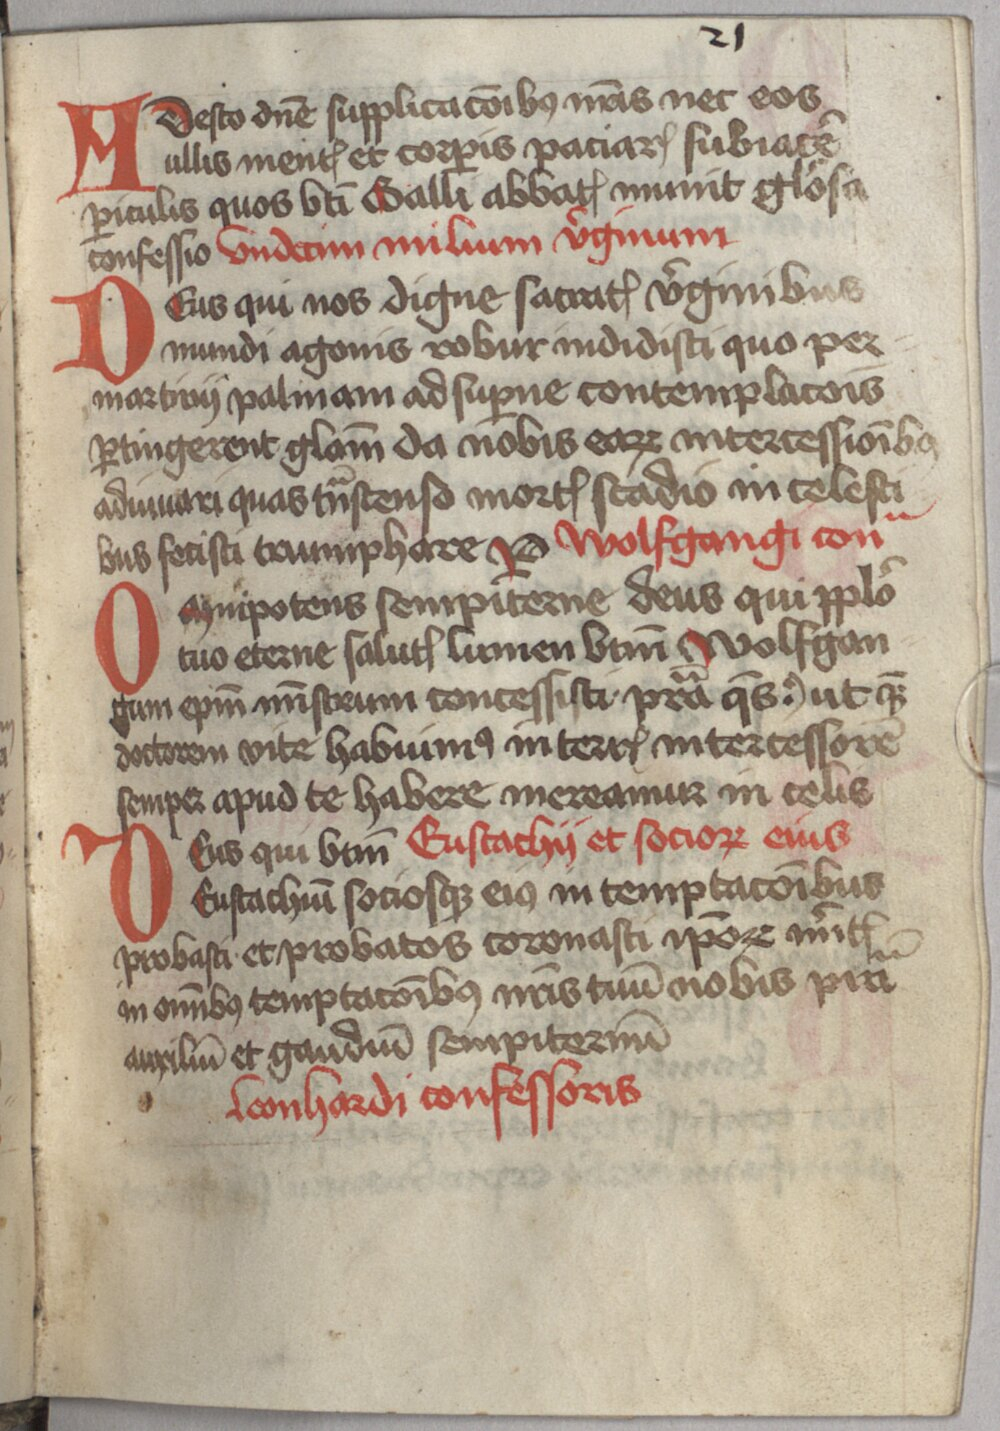 21
ADesto dn̄e supplicacōibꝫ nr̄is nec eos
ullis mentꝭ et corꝑis paciarꝭ subiacē
ꝑiculis quos btī Galli abbatꝭ munit gl̄osa
confessio Vndecim milium v̄ginum
DEus qui nos digne sacratꝭ v̄ginibus
mundi agonis robur indidisti quo per
martirij palmam ad suꝑne contemplacōis
ꝑtingerent glām da nobis eaꝝ intercessiōibꝫ
adiuuari quas tn̄scenso mortꝭ stadio in celesti
bus fecisti triumphare P Wolfgangi con
Omnipotens sempiterne deus qui ppl̄o
tuo eterne salutꝭ lumen btm̄ Wolfgan
gum epm̄ mīstrum concessisti pr̄a qs̄ ut quē
doctorem vite habuimꝯ in terrꝭ intercessorē
semper apud te habere mereamur in celis
DEus qui btm̄ Eustachij et socioꝝ eius
Eustachiū sociosqꝫ eiꝯ in temptacōibus
probasti et probatos coronasti ip̄oꝝ mr̄itꝭ
in om̄ibꝫ temptacōibꝫ nr̄is tuū nobis
auxiliū et gaudiū sempiternū
Leonhardi confessoris